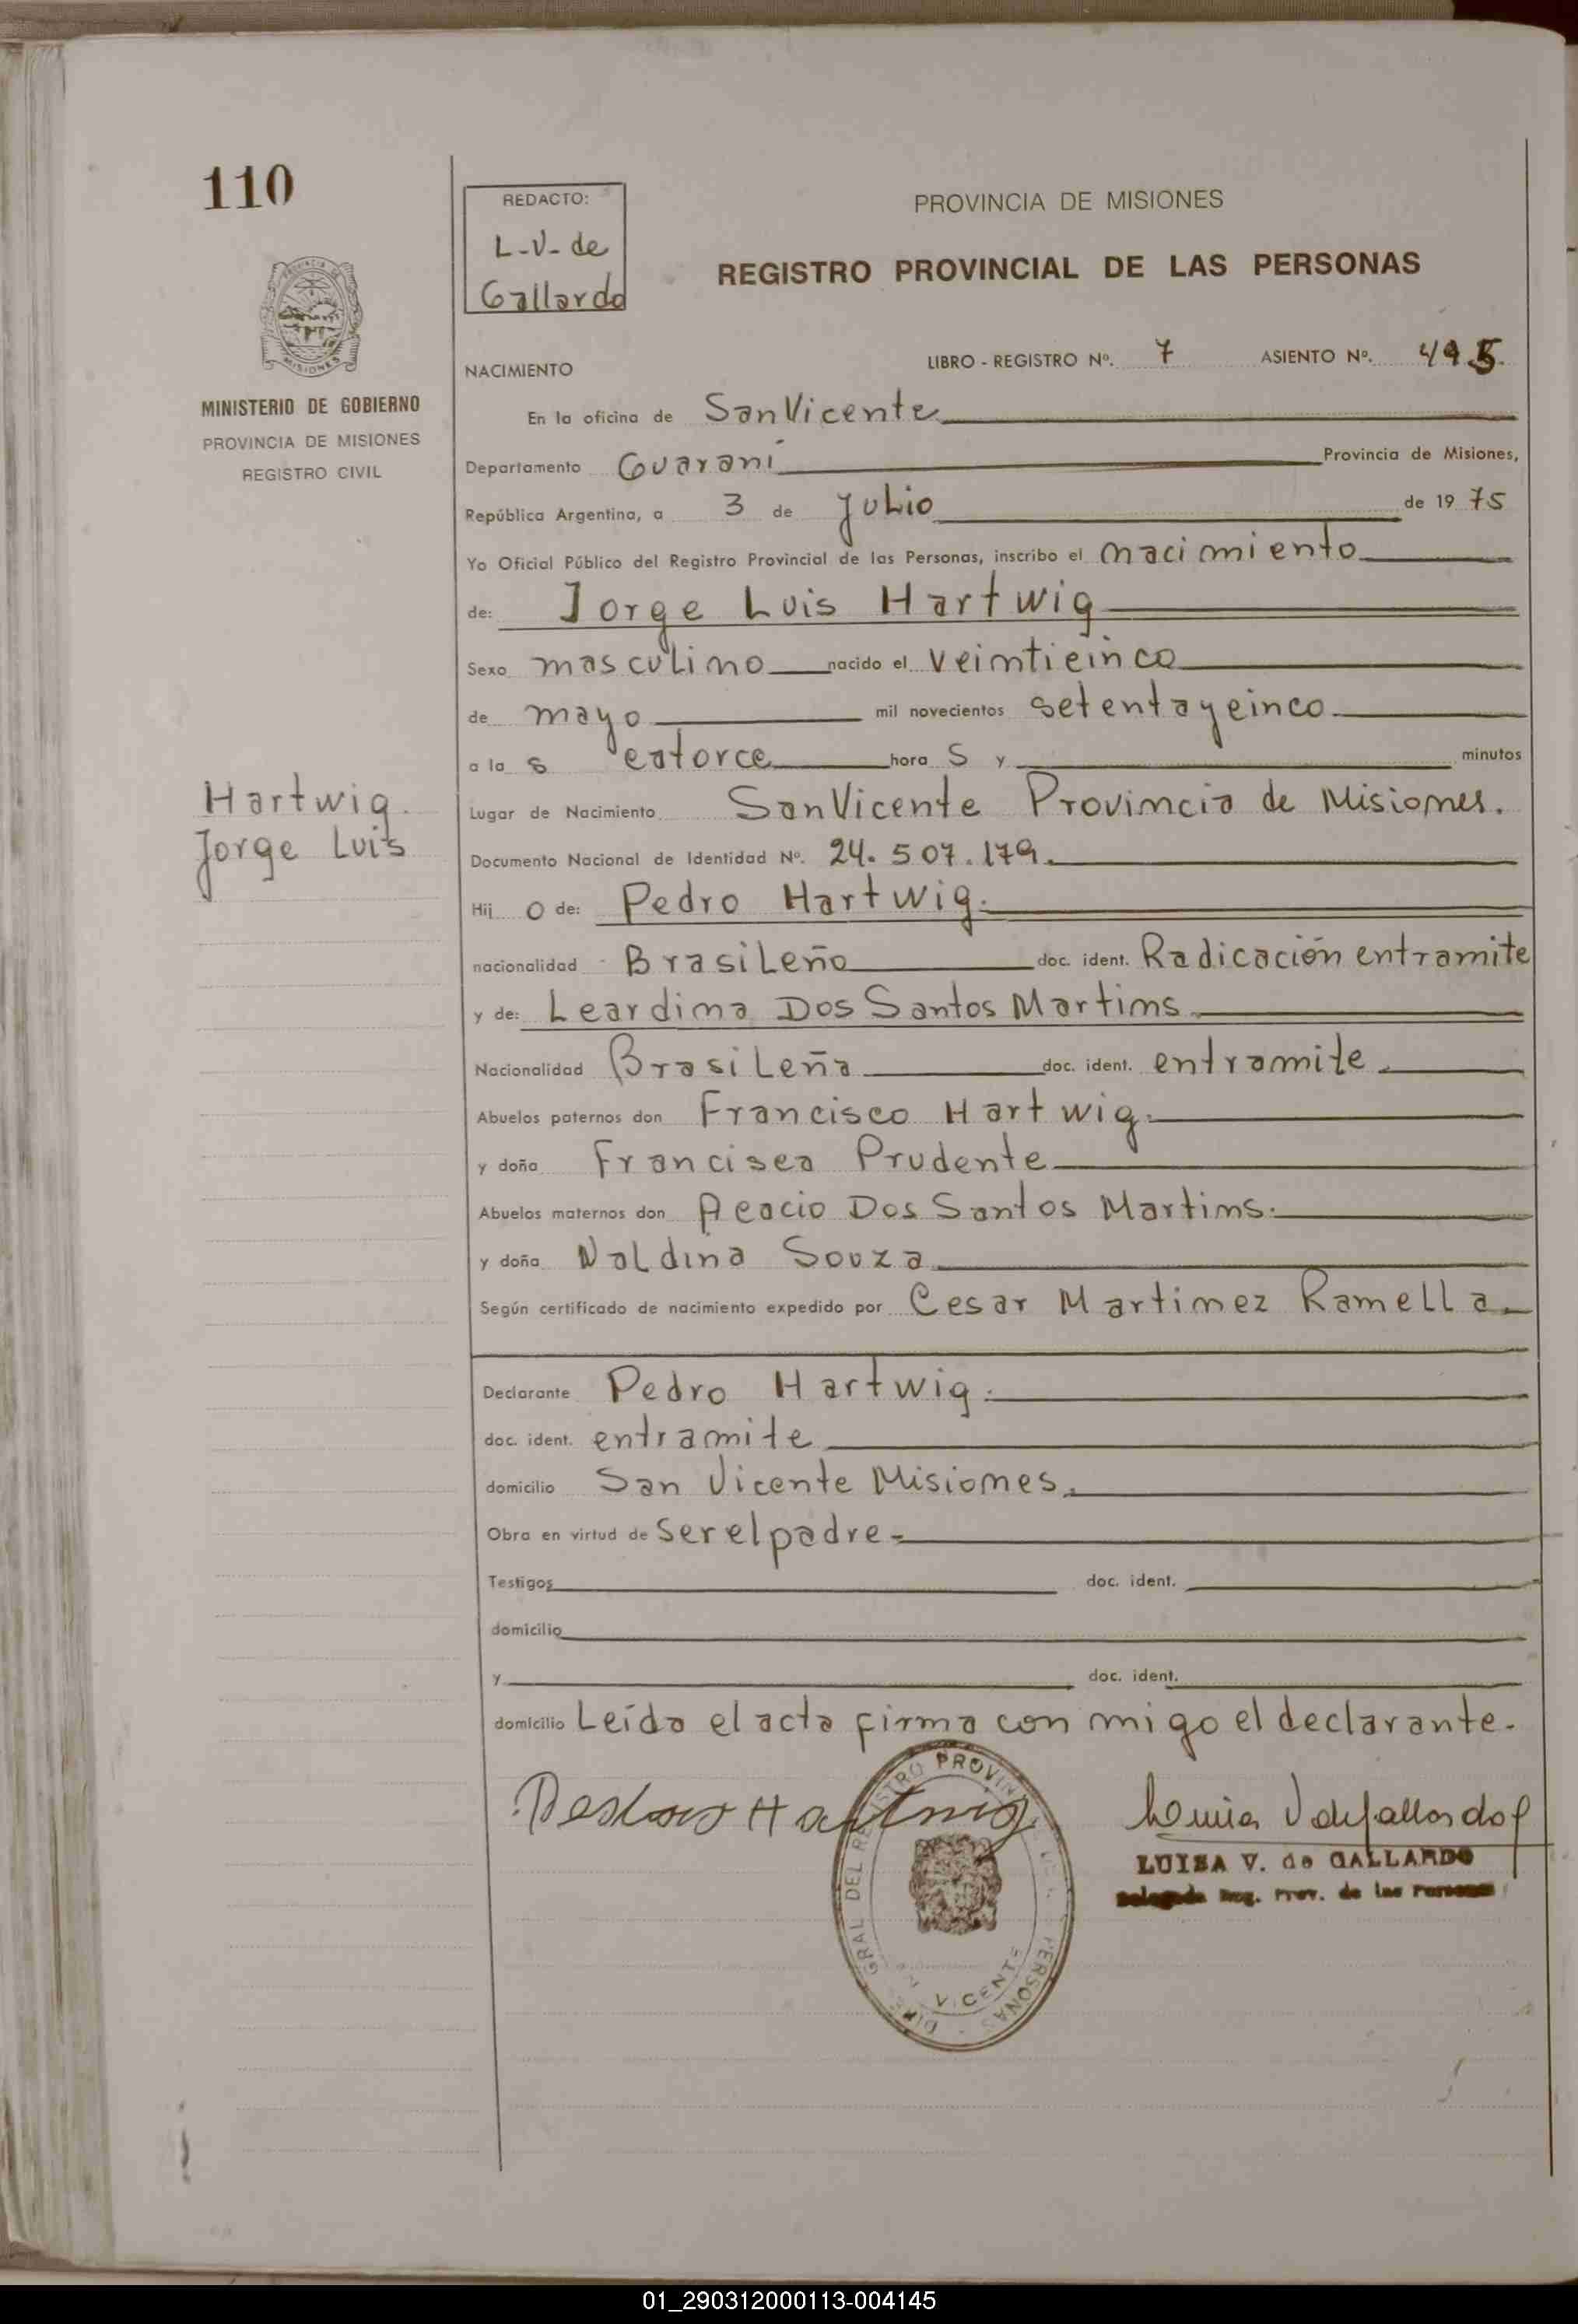 110
REDACTO:
L-V- de
Gallardo
PROVINCIA DE MISIONES
REGISTRO PROVINCIAL DE LAS PERSONAS
MINISTERIO DE GOBIERNO
PROVINCIA DE MISIONES
REGISTRO CIVIL
NACIMIENTO
LIBRO - REGISTRO Nº. 7 ASIENTO Nº. 495.
En la oficina de San Vicente
Departamento Guaraní Provincia de Misiones,
República Argentina, a 3 de Julio de 1975
Yo Oficial Público del Registro Provincial de las Personas, inscribo el nacimiento
de: Jorge Luis Hartwig
Sexo masculino nacido el veinticinco
de mayo mil novecientos setenta y cinco
a la s catorce hora s y minutos
Hartwig.
Jorge Luis
Lugar de Nacimiento San Vicente Provincia de Misiones.
Documento Nacional de Identidad Nº. 24.507.179.
Hij o de: Pedro Hartwig.
nacionalidad Brasileño doc. ident. Radicación entramite
y de: Leardina Dos Santos Martins
Nacionalidad Brasileña doc. ident. entramite.
Abuelos paternos don Francisco Hartwig.
y doña Francisca Prudente
Abuelos maternos don Acacio Dos Santos Martins.
y doña Naldina Souza
Según certificado de nacimiento expedido por Cesar Martinez Ramella
Declarante Pedro Hartwig.
doc. ident. entramite
domicilio San Vicente Misiones.
Obra en virtud de ser el padre-
Testigos doc. ident.
domicilio
y doc. ident.
domicilio Leída el acta firma con migo el declarante.
Hartwig
LUISA V. de GALLARDO
Delegada Reg. Prov. de las Personas
GRAL DEL REGISTRO PROVIN PERSONAS
VICENTE
01_290312000113-004145